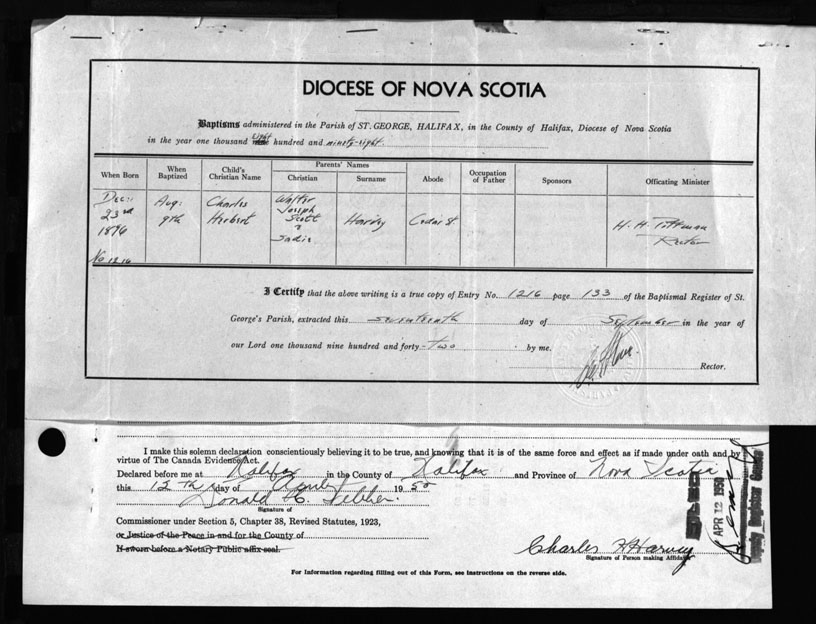 DIOCESE OF NOVA SCOTIA
Baptisms administered in the Parish of ST. GEORGE, HALIFAX, in the County of Halifax, Diocese of Nova Scotia
in the year one thousand eight hundred and ninety-eight.
When Born
When Baptized
Child's Christian Name
Parents' Names
Christian
Surname
Abode
Occupation of Father
Sponsors
Officating Minister
Dec: 23rd 1896
Aug: 9th
Charles Herbert
Walter Joseph Scott & Sadie
Harvey
Cedar St.
H. H. Pittman
Rector
No 1216
I Certify that the above writing is a true copy of Entry No. 1216 page 133 of the Baptismal Register of St.
George's Parish, extracted this seventeenth day of September in the year of
our Lord one thousand nine hundred and forty-two by me.
Rector.
I make this solemn declaration conscientiously believing it to be true, and knowing that it is of the same force and effect as if made under oath and by
virtue of The Canada Evidence Act.
Declared before me at Halifax in the County of Halifax and Province of Nova Scotia
this 12th day of April 1950
Donald
Signature of
Commissioner under Section 5, Chapter 38, Revised Statutes, 1923,
or Justice of the Peace in and for the County of
If sworn before a Notary Public affix seal.
Charles H Harvey
Signature of Person making Affidavit
For Information regarding filling out of this Form, see Instructions on the reverse side.
APR 12 1950
Deputy Registrar General